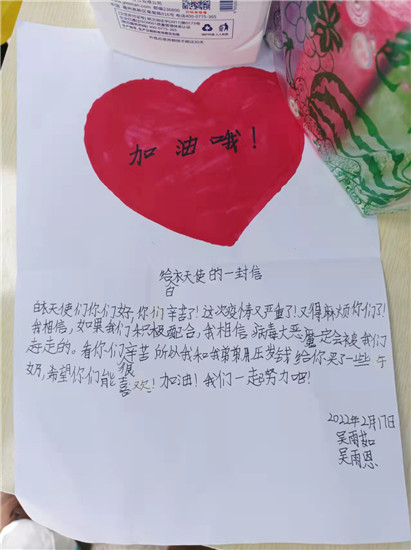 加油哦!
给白衣天使的一封信
白衣天使们你们好,你们辛苦了!这次疫情又严重了!又得麻烦你们了!
我相信,如果我们积极配合,我相信病毒大恶魔定会被我们
赶走的。看你们很辛苦所以我和我弟弟用压岁钱给你买了一些牛
奶,希望你们能喜欢!加油!我们一起努力吧!
2022年2月17日
吴雨茹
吴雨恩